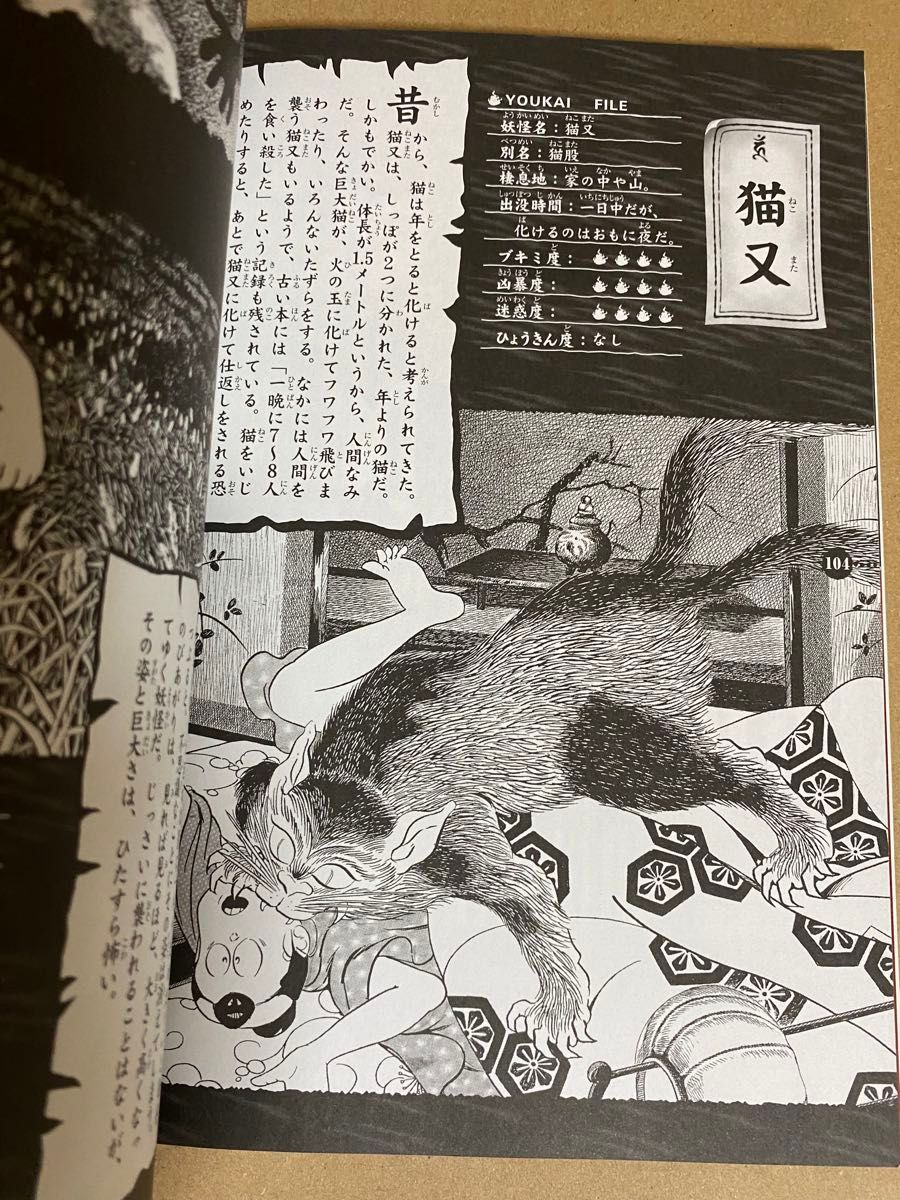 猫又
YOUKAI FILE
妖怪名：猫又
別名：猫股
棲息地：家の中や山。
出没時間：一日中だが、
化けるのはおもに夜だ。
ブキミ度：
凶暴度：
迷惑度：
ひょうきん度：なし
昔から、猫は年をとると化けると考えられてきた。
猫又は、しっぽが2つに分かれた、年よりの猫だ。
しかもでかい。体長が1.5メートルというから、人間なみ
だ。そんな巨大猫が、火の玉に化けてフワフワ飛びま
わったり、いろんないたずらをする。なかには人間を
襲う猫又もいるようで、古い本には「一晩に7〜8人
を食い殺した」という記録も残されている。猫をいじ
めたりすると、あとで猫又に化けて仕返しをされる恐
104
のびあがりは、見れば見るほど、大きく高くなっ
てゆく妖怪だ。じっさいに襲われることはないが、
その姿と巨大さは、ひたすら怖い。